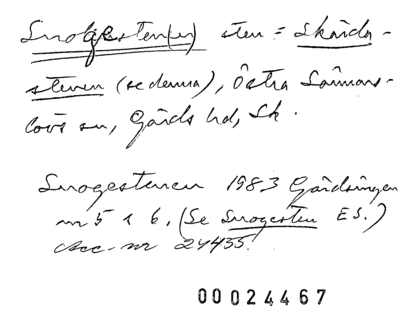 Snogesten(en) sten = Skårda-
stenen (se denna), Östra Sönnars-
lövs sn, Gärds hd, Sk.
Snogestenen 1983 Gärdsingen
nr 5 s 6. (Se Snogesten ES.)
Acc-nr 24435.
00024467